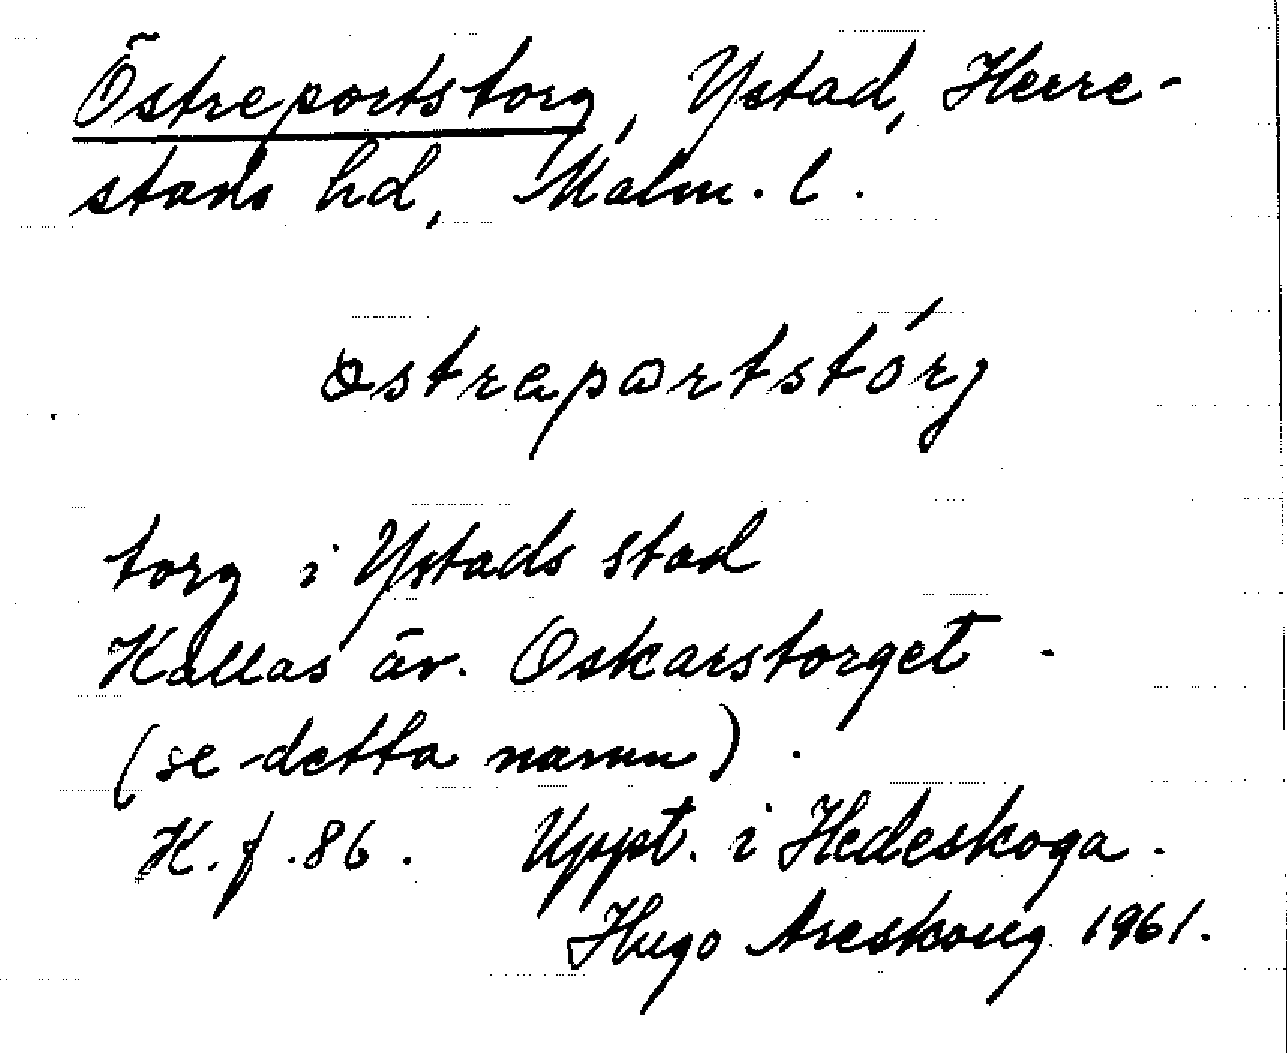 Östreportstorg, Ystad, Herre-
stads hd, Malm. l.
østrepɑrtstórg
torg i Ystads stad
Kallas äv. Oskarstorget.
(se detta namn).
K.f.86. Uppt. i Hedeskoga.
Hugo Areskoug 1961.